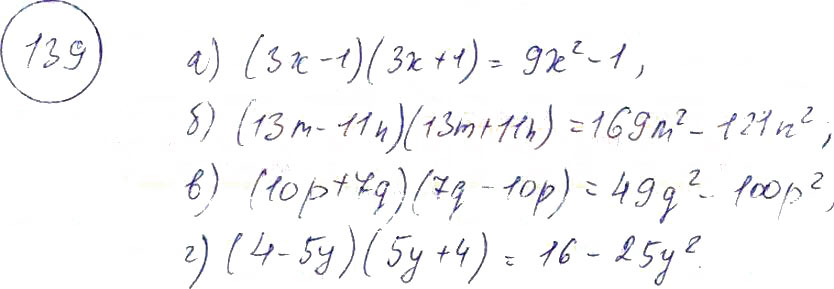 139
а) (3x-1)(3x+1) = 9x²-1,
б) (13m-11n)(13m+11n) = 169m² - 121n²;
в) (10p+7q)(7q-10p) = 49q² - 100p²,
г) (4-5y)(5y+4) = 16 - 25y².